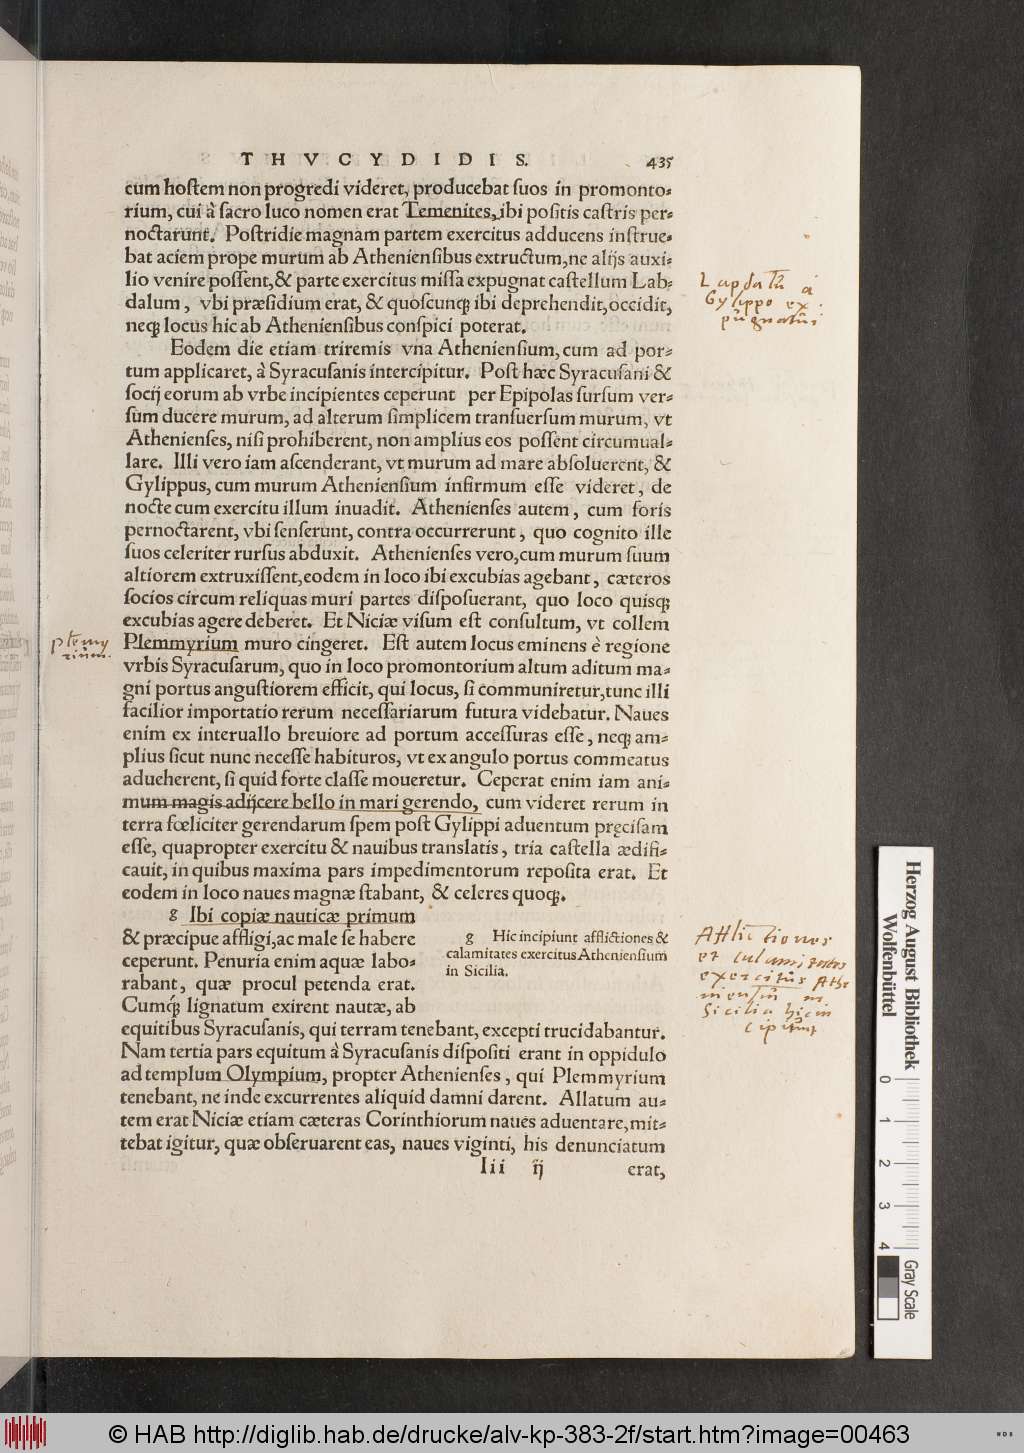 THVCYDIDIS. 435
cum hoſtem non progredi videret, producebat ſuos in promonto⸗
rium, cui à ſacro luco nomen erat Temenites, ibi poſitis caſtris per⸗
noctarunt. Poſtridie magnam partem exercitus adducens inſtrue⸗
bat aciem prope murum ab Athenienſibus extructum, ne alijs auxi⸗
lio venire poſſent, & parte exercitus miſſa expugnat caſtellum Lab⸗
dalum, vbi præſidium erat, & quoſcunq; ibi deprehendit, occidit,
neq; locus hic ab Athenienſibus conſpici poterat.
Lapdatũ à
Gylippo ex
pũgnatũ
Eodem die etiam triremis vna Athenienſium, cum ad por⸗
tum applicaret, à Syracuſanis intercipitur. Poſt hæc Syracuſani &
ſocij eorum ab vrbe incipientes ceperunt per Epipolas ſurſum ver⸗
ſum ducere murum, ad alterum ſimplicem tranſuerſum murum, vt
Athenienſes, niſi prohiberent, non amplius eos poſſent circumual⸗
lare. Illi vero iam aſcenderant, vt murum ad mare abſoluerent, &
Gylippus, cum murum Athenienſium infirmum eſſe videret, de
nocte cum exercitu illum inuadit. Athenienſes autem, cum foris
pernoctarent, vbi ſenſerunt, contra occurrerunt, quo cognito ille
ſuos celeriter rurſus abduxit. Athenienſes vero, cum murum ſuum
altiorem extruxiſſent, eodem in loco ibi excubias agebant, cæteros
ſocios circum reliquas muri partes diſpoſuerant, quo loco quisq;
excubias agere deberet. Et Niciæ viſum eſt conſultum, vt collem
Plemmyrium muro cingeret. Eſt autem locus eminens è regione
Plemy
riũm.
vrbis Syracuſarum, quo in loco promontorium altum aditum ma⸗
gni portus anguſtiorem efficit, qui locus, ſi communiretur, tunc illi
facilior importatio rerum neceſſariarum futura videbatur. Naues
enim ex interuallo breuiore ad portum acceſſuras eſſe, neq; am⸗
plius ſicut nunc neceſſe habituros, vt ex angulo portus commeatus
adueherent, ſi quid forte claſſe moueretur. Ceperat enim iam ani⸗
mum magis adijcere bello in mari gerendo, cum videret rerum in
terra fœliciter gerendarum ſpem poſt Gylippi aduentum pręciſam
eſſe, quapropter exercitu & nauibus translatis, tria caſtella ædifi⸗
cauit, in quibus maxima pars impedimentorum repoſita erat. Et
eodem in loco naues magnæ ſtabant, & celeres quoq;.
g Ibi copiæ nauticæ primum
& præcipue affligi, ac male ſe habere
ceperunt. Penuria enim aquæ labo⸗
rabant, quæ procul petenda erat.
Cumq́; lignatum exirent nautæ, ab
g Hic incipiunt afflictiones &
calamitates exercitus Athenienſium
in Sicilia.
Afflictiones
et calamitates
exercitũs Athe
nienſiũ in
Sicilia hic in
cipiũnt
equitibus Syracuſanis, qui terram tenebant, excepti trucidabantur.
Nam tertia pars equitum à Syracuſanis diſpoſiti erant in oppidulo
ad templum Olympium, propter Athenienſes, qui Plemmyrium
tenebant, ne inde excurrentes aliquid damni darent. Allatum au⸗
tem erat Niciæ etiam cæteras Corinthiorum naues aduentare, mit⸗
tebat igitur, quæ obſeruarent eas, naues viginti, his denunciatum
Iii ij erat,
Herzog August Bibliothek
Wolfenbüttel
0 1 2 3 4
Gray Scale
© HAB http://diglib.hab.de/drucke/alv-kp-383-2f/start.htm?image=00463